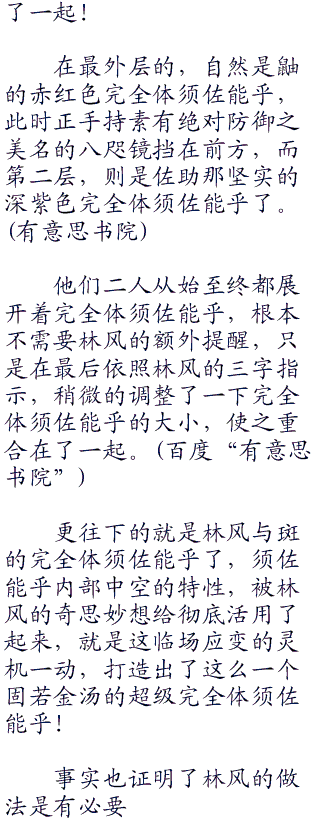 了一起！
在最外层的，自然是鼬
的赤红色完全体须佐能乎，
此时正手持素有绝对防御之
美名的八咫镜挡在前方，而
第二层，则是佐助那坚实的
深紫色完全体须佐能乎了。
(有意思书院)
他们二人从始至终都展
开着完全体须佐能乎，根本
不需要林风的额外提醒，只
是在最后依照林风的三字指
示，稍微的调整了一下完全
体须佐能乎的大小，使之重
合在了一起。(百度“有意思
书院”)
更往下的就是林风与斑
的完全体须佐能乎了，须佐
能乎内部中空的特性，被林
风的奇思妙想给彻底活用了
起来，就是这临场应变的灵
机一动，打造出了这么一个
固若金汤的超级完全体须佐
能乎！
事实也证明了林风的做
法是有必要